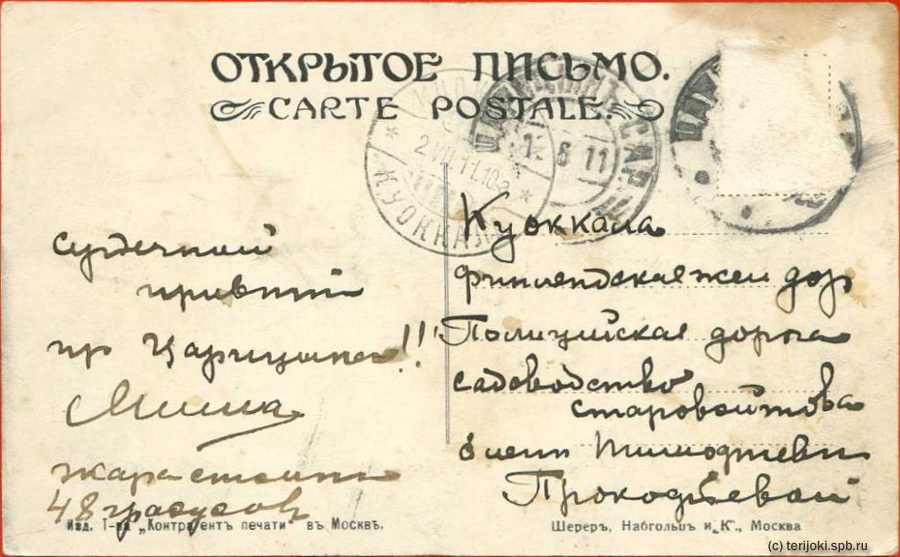 ОТКРЫТОЕ ПИСЬМО.
CARTE POSTALE.
КУОККАЛА
2.VII.11.10
1 6 11
Сердечный
привѣтъ
Царицына!!
Миша
жара стоитъ
48 градусов
Куоккала
Финляндская жел дор
Полицейская дорога
садоводство
Старовойтова
Елень Тимофеевн
Прокофьевой
Изд. Т-ва „Контрагентъ печати" въ Москвѣ.
Шереръ, Набгольцъ и „К", Москва
(c) terijoki.spb.ru